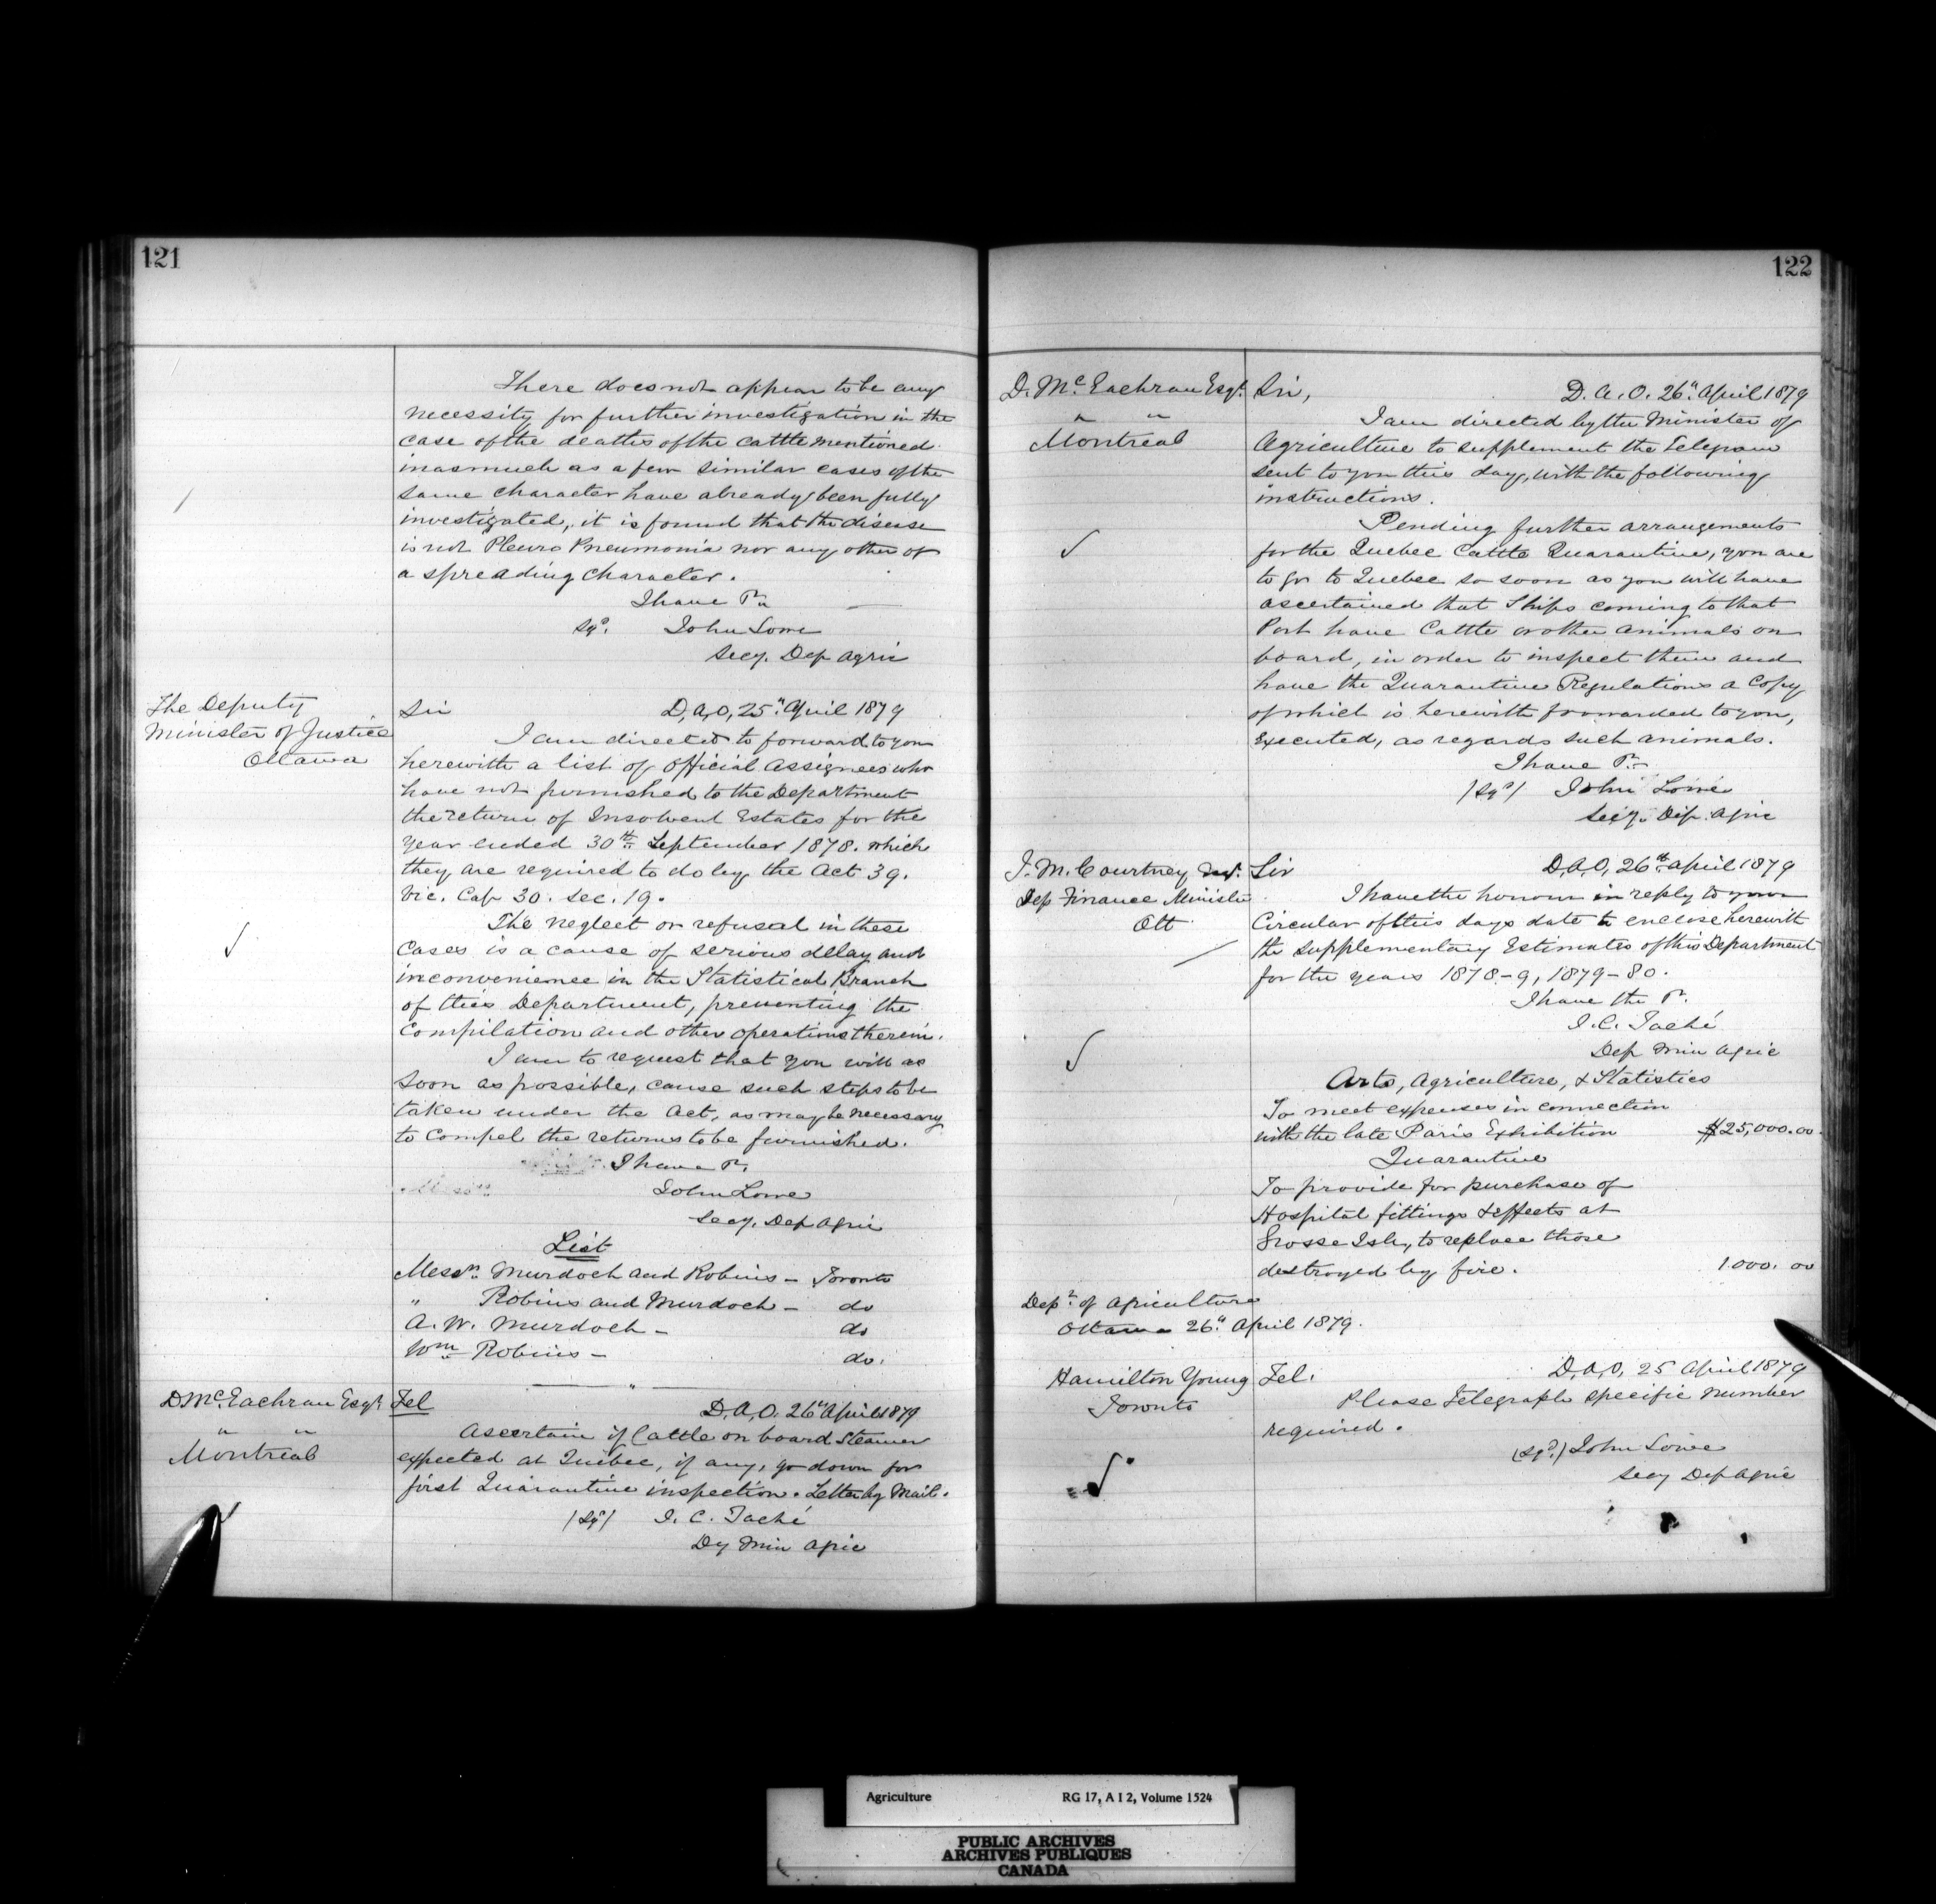 121
There does not appear to be any
necessity for further investigation in the
case of the deaths of the cattle mentioned
inasmuch as a few similar cases of the
same character have already been fully
investigated, it is found that the disease
is not Pleuro Pneumonia nor any other of
a spreading character.
I have &c
Sgd. John Lowe
Secy. Dep Agric
The Deputy
Minister of Justice
Ottawa
Sir D,A,O, 25" April 1879
I am directed to forward to you
herewith a list of Official Assignees who
have not furnished to the Department
the return of Insolvent Estates for the
year ended 30th September 1878. which
they are required to do by the Act 39.
Vic. Cap 30. Sec. 19.
The neglect or refusal in these
cases is a cause of serious delay and
inconvenience in the Statistical Branch
of this Department, preventing the
Compilation and other operations therein.
I am to request that you will as
soon as possible, cause such steps to be
taken under the Act, as may be necessary
to compel the returns to be furnished.
I have &c.
John Lowe
Secy. Dep Agric
List
Messrs. Murdoch and Robins - Toronto
" Robins and Murdoch - do
A. W. Murdoch - do
Wm Robins - do.
D McEachran Esqr
" "
Montreal
Tel
D,A,O. 26" April 1879
Ascertain if Cattle on board Steamer
expected at Quebec, if any, go down for
first Quarantine inspection. Letter by Mail.
/Sgd/ J. C. Taché
Dy Min Agric
122
D. McEachran Esqr.
" "
Montreal
Sir, D. A. O. 26" April 1879
I am directed by the Minister of
Agriculture to supplement the Telegram
sent to you this day, with the following
instructions.
Pending further arrangements
for the Quebec Cattle Quarantine, you are
to go to Quebec so soon as you will have
ascertained that Ships coming to that
Port have Cattle or other animals on
board, in order to inspect them and
have the Quarantine Regulations a Copy
of which is herewith forwarded to you,
Executed, as regards such animals.
I have &c
/Sgd/ John Lowe
Secy. Dep. Agric
J. M. Courtney
Dep Finance Minister
Ott
Sir D,A,O, 26th April 1879
I have the honour in reply to your
Circular of this days date to enclose herewith
the Supplementary Estimates of this Department
for the years 1878-9, 1879-80.
I have the &c.
J. C. Taché
Dep Min Agric
Arts, Agriculture, & Statistics
To meet expenses in connection
with the late Paris Exhibition $25,000.00
Quarantine
To provide for purchase of
Hospital fittings & effects at
Grosse Isle, to replace those
destroyed by fire. 1.000. 00
Dept. of Agriculture
Ottawa 26" April 1879.
Hamilton Young
Toronto
Tel. D,A,O, 25 April 1879
Please Telegraph specific number
required.
(Sgd.) John Lowe
Secy Dep Agric
Agriculture RG 17, A I 2, Volume 1524
PUBLIC ARCHIVES
ARCHIVES PUBLIQUES
CANADA